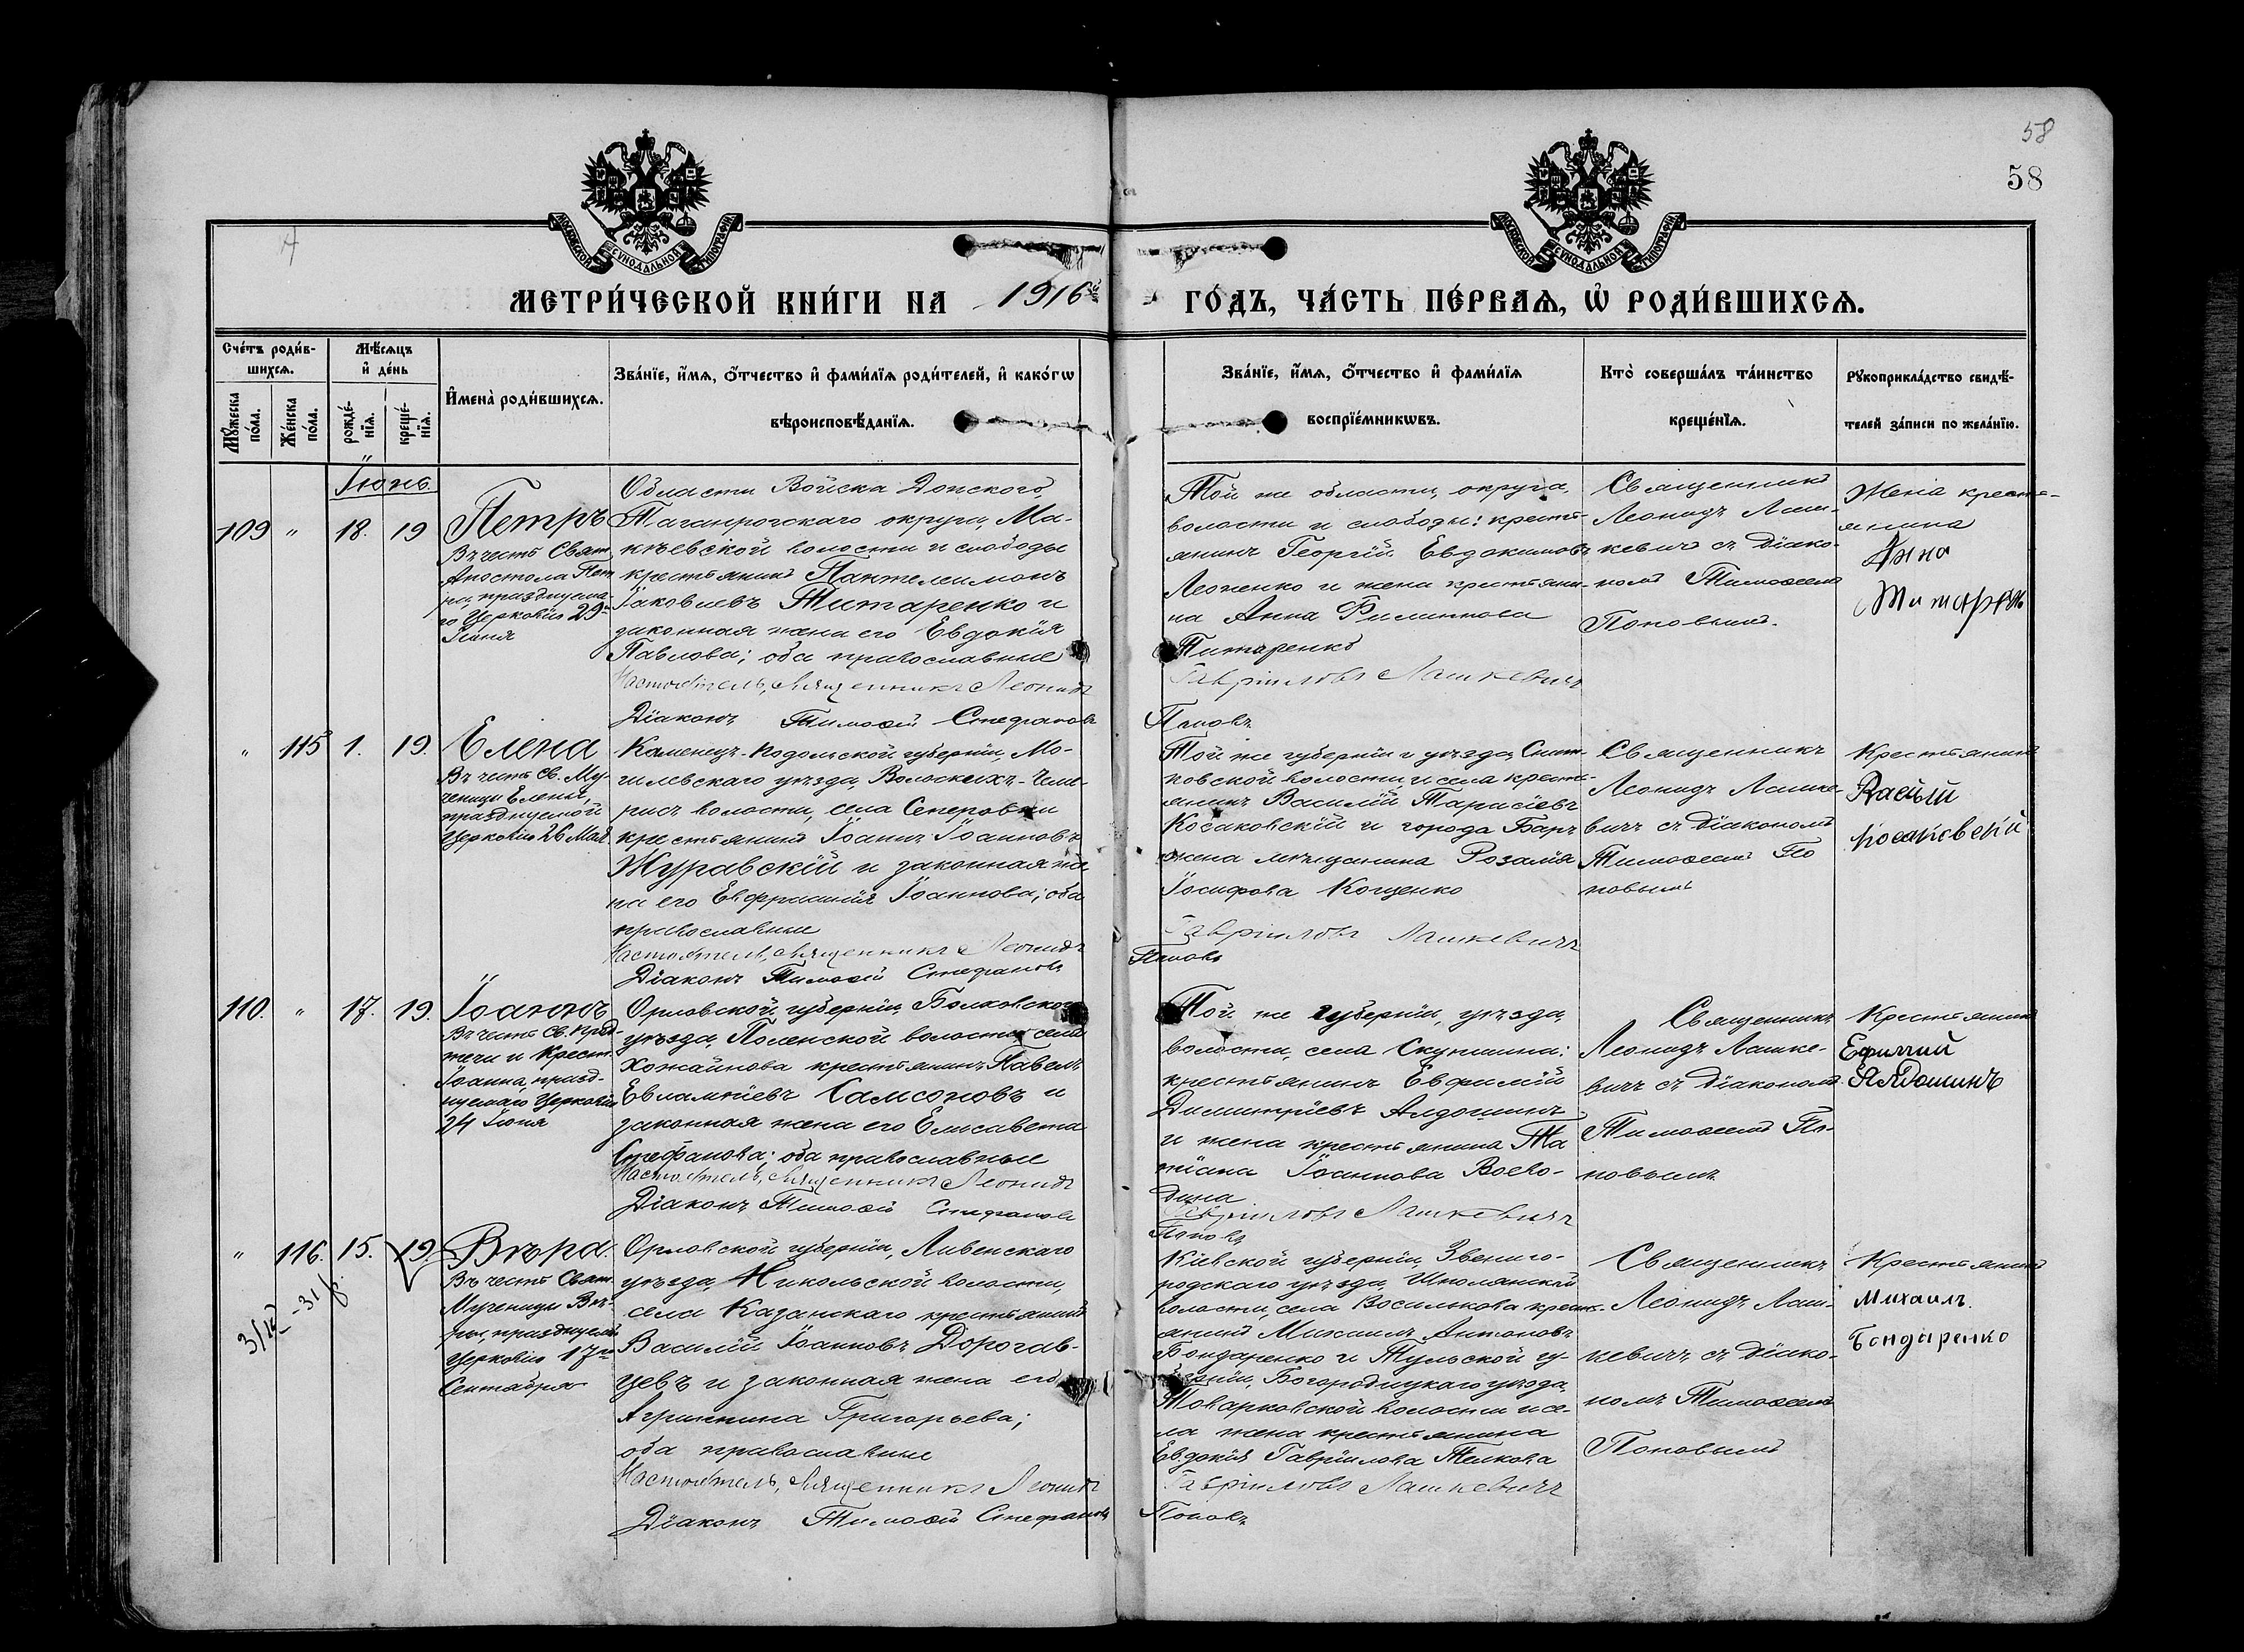 58
58
МОСКОВСКОЙ СѴНОДАЛЬНОЙ ТИПОГРАФІИ
МОСКОВСКОЙ СѴНОДАЛЬНОЙ ТИПОГРАФІИ
МЕТРИ́ЧЕСКОЙ КНИ́ГИ НА 1916 ГО́ДЪ, ЧА́СТЬ ПЕ́РВАѦ, Ѡ РОДИ́ВШИХСѦ.
Сче́тъ роди́в-
шихсѧ.
Мꙋжеска по́ла.
Же́нска по́ла.
Мѣ́сѧцъ
и де́нь
рожде́-
нїѧ.
креще́-
нїѧ.
Имена̀ роди́вшихсѧ.
Зва́нїе, и́мѧ, о́тчество и фами́лїѧ роди́телей, и како́гѡ
вѣроисповѣ́данїѧ.
Зва́нїе, и́мѧ, о́тчество и фами́лїѧ
воспрїе́мникѡвъ.
Кто̀ соверша́лъ та́инство
креще́нїѧ.
Рꙋкоприкла́дство свидѣ́-
телей за́писи по жела́нїю.
Іюнь.
109 " 18. 19
Петръ
Въ честь Свят.
Апостола Пет
ра, празднуема-
го Церковію 29го
Іюня
Области Войска Донского,
Таганрогскаго округа, Ма-
кѣевской волости и слободы
крестьянинъ Пантелеимонъ
Іаковлевъ Титаренко и
законная жена его Евдокія
Павлова; оба православные
Настоятель, Священникъ Леонидъ
Діаконъ Тимоѳей Стефановъ
Той же области, округа,
волости и слободы: кресть-
янинъ Георгій Евдокимовъ
Леоненко и жена крестьяни-
на Анна Филиппова
Титаренко
Гавріиловъ Лашкевичъ
Поповъ
Священникъ
Леонидъ Лаш-
кевичъ съ діако-
номъ Тимоѳеемъ
Поповымъ.
Жена кресть-
янина
Анна
" 115 1. 19.
Елена
Въ честь Св. Му-
ченицы Елены,
празднуемой
Церковію 26 Мая
Каменецъ-Подольской губерніи, Мо-
гилевскаго уѣзда,
волости, села
крестьянинъ Іоаннъ Іоанновъ
Журавскій и законная же-
на его Евфросинія Іоаннова; оба
православные
Настоятель, Священникъ Леонидъ
Діаконъ Тимоѳей Стефановъ
Той же губерніи и уѣзда,
волости и села кресть-
янинъ Василій Тарасіевъ
Косаковскій и города Баръ
жена мѣщанина Розалія
Іосифова Коценко
Гавріиловъ Лашкевичъ
Поповъ
Священникъ
Леонидъ Лашке
вичъ съ діакономъ
Тимоѳеемъ По
повымъ
Крестьянинъ
110. " 17. 19.
Іоаннъ
Въ честь Св. Пред-
течи и Крест.
Іоанна, празд-
нуемаго Церковію
24 Іюня
Орловской губерніи, Болховского
уѣзда, Поленской волости, села
Хожайнова крестьянинъ Павелъ
Евлампіевъ Самсоновъ и
законная жена его Елисавета
Стефанова; оба православные
Настоятель, Священникъ Леонидъ
Діаконъ Тимоѳей Стефановъ
Той же губерніи, уѣзда,
волости, села
крестьянинъ Евфимій
Димитріевъ Алдошинъ
и жена крестьянина Та
тіана Іоаннова Воево-
дина
Гавріиловъ Лашкевичъ
Поповъ
Священникъ
Леонидъ Лашке-
вичъ съ діакономъ
Тимоѳеемъ По-
повымъ
Крестьянинъ
Ефимій
Алдошинъ
" 116. 15. 19.
Вѣра.
Въ честь Свят.
Мученицы Вѣ-
ры, празднуемой
Церковію 17го
Сентября
Орловской губерніи, Ливенскаго
уѣзда, Никольской волости,
села Казанскаго крестьянинъ
Василій Іоанновъ Дорогав-
цевъ и законная жена его
Агриппина Григорьева;
оба православные
Настоятель, Священникъ Леонидъ
Діаконъ Тимоѳей Стефановъ
Кіевской губерніи, Звениго-
родскаго уѣзда, Шполянской
волости, села Василькова кресть-
янинъ Михаилъ Антоновъ
Бондаренко и Тульской гу-
берніи, Богородицкаго уѣзда,
Товарковской волости и се-
ла жена крестьянина
Евдокія Гавріилова Телкова
Гавріиловъ Лашкевичъ
Поповъ
Священникъ
Леонидъ Лаш-
кевичъ съ діако-
номъ Тимоѳеемъ
Поповымъ
Крестьянинъ
Михаилъ
Бондаренко